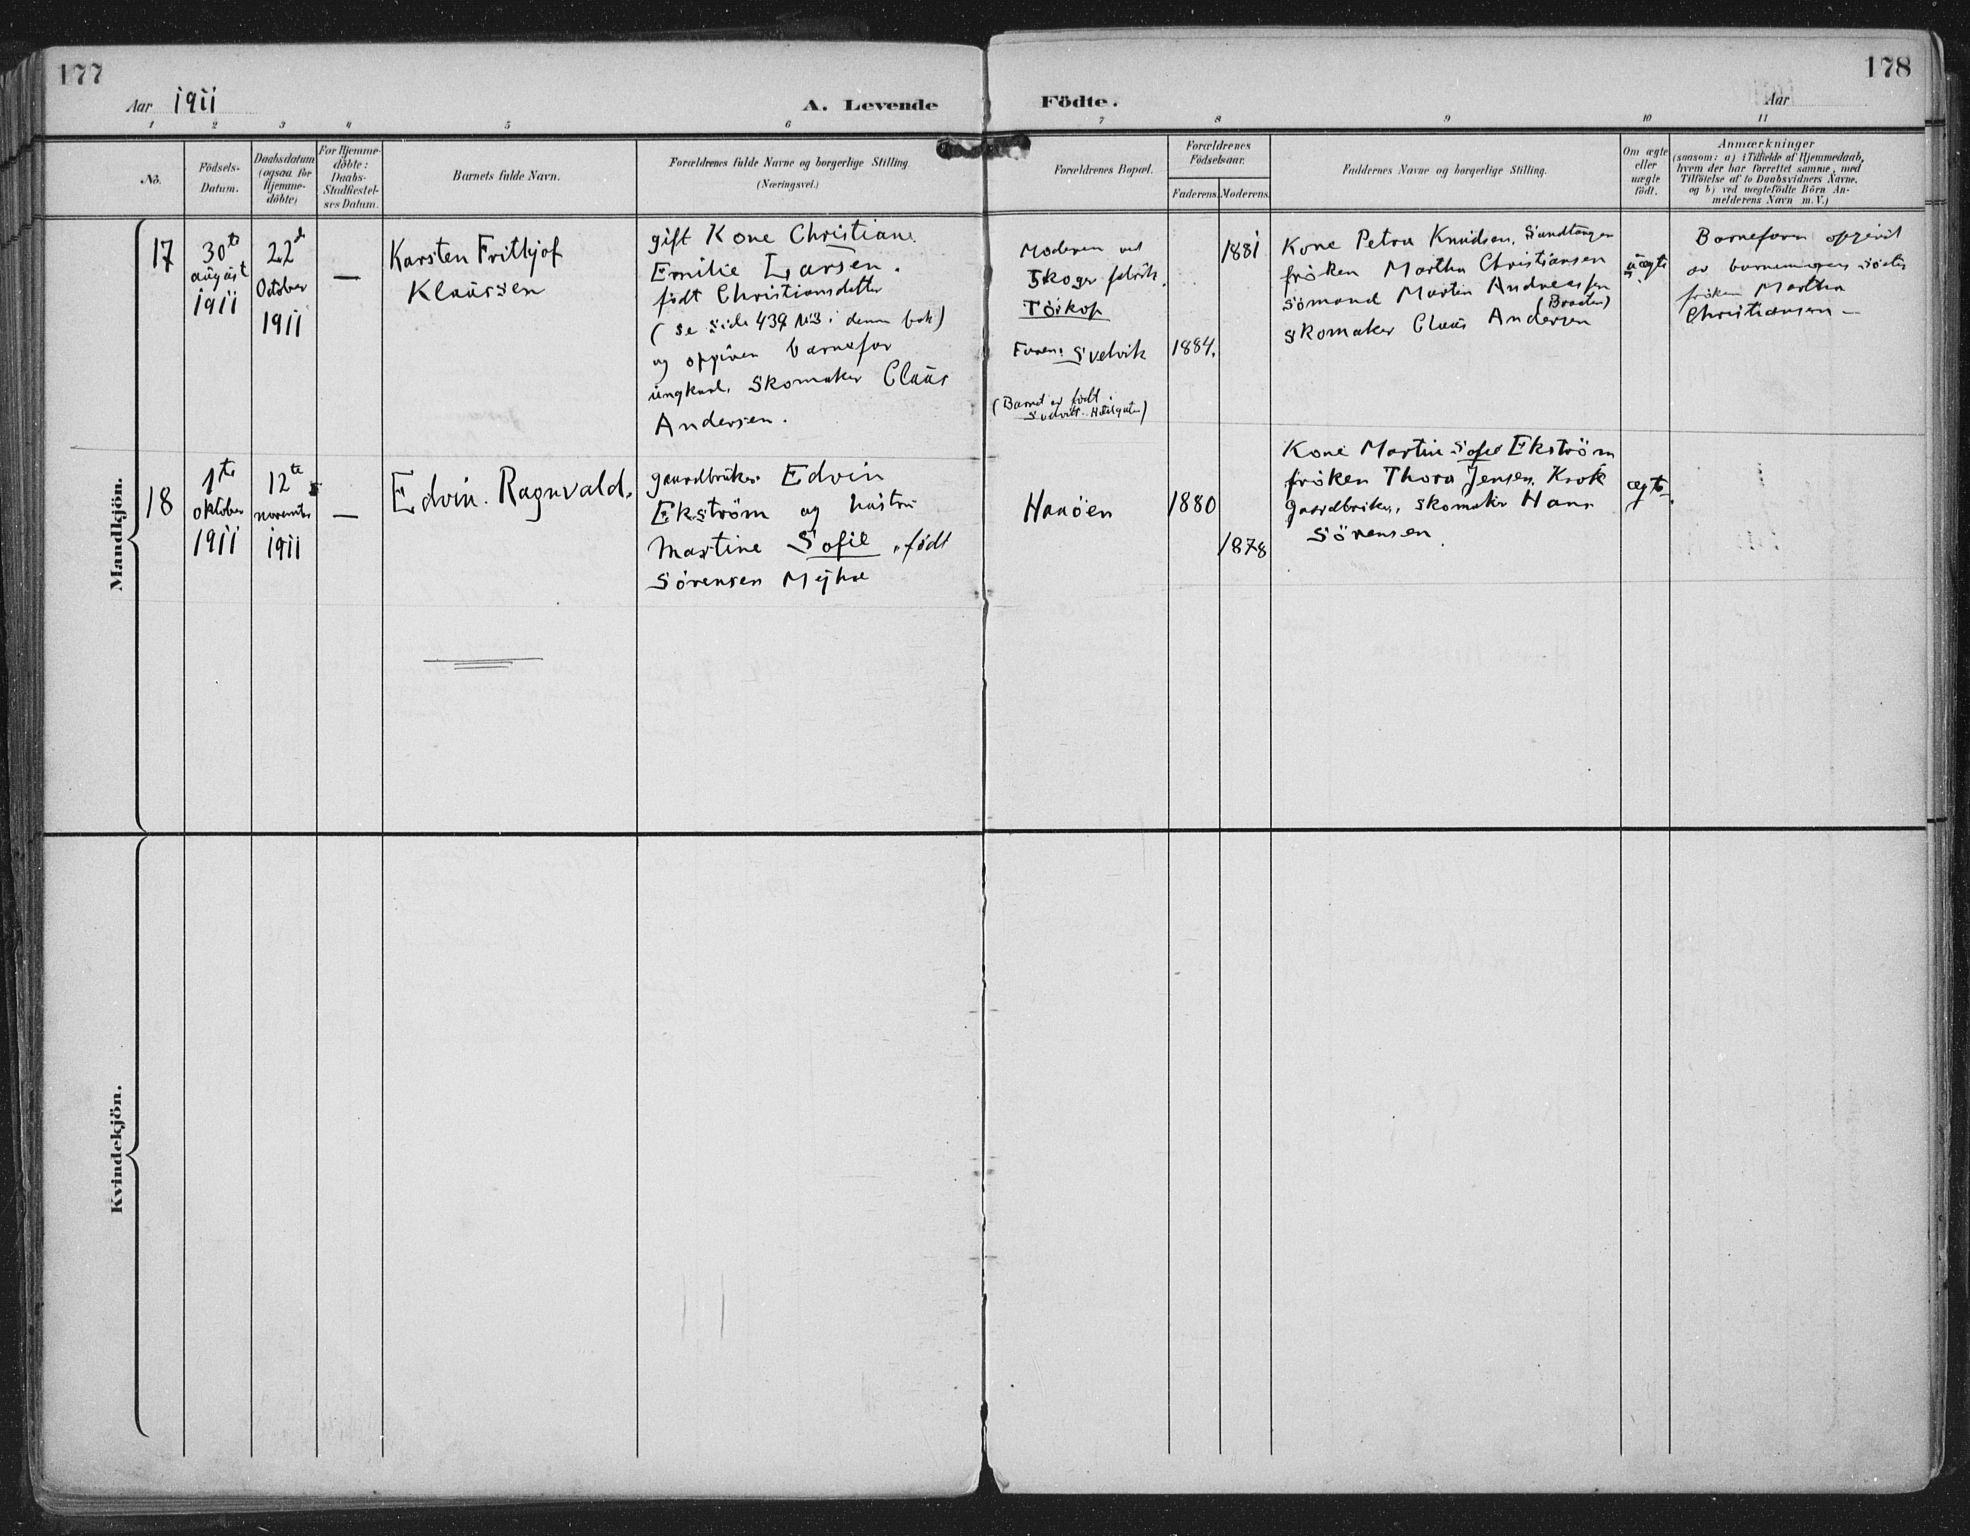 177
178
Aar 1911
A. Levende Födte.
Aar
1 2 3 4 5 6 7 8 9 10 11
No.
Födsels-
Datum.
Daabsdatum
(ogsaa for
Hjemme-
döbte)
For Hjemme-
döbte:
Daabs-
Stadfæstel-
ses Datum.
Barnets fulde Navn.
Forældrenes fulde Navne og borgerlige Stilling
(Næringsvei.)
Forældrenes Bopæl.
Forældrenes
Födselsaar.
Faderens. Moderens.
Faddernes Navne og borgerlige Stilling.
Om ægte
eller
uægte
födt.
Anmærkninger
(saasom: a) i Tilfælde af Hjemmedaab,
hvem der har forrettet samme, med
Tilföielse af to Daabsvidners Navne.
og b) ved uægtefödte Börn An-
melderens Navn m. V.)
Mandkjön.
17
30te
august
1911
22d
October
1911
—
Karsten Frithjof
Klaussen
gift Kone Christiane
Emilie Larsen.
født Christiansdatter
(se side 439 N3 i denne bok)
og opgiven barnefar
ungkarl, skomaker Claus
Andersen.
Moderen ved
Skoger fabrik.
Törkop
Faren: Svelvik
(Barnet er født i
Svelvik
1884.
1881
Kone Petra Knudsen, Sandtangen
frøken Martha Christiansen
sömand Martin Andreassen
(Braaten)
skomaker Claus Andersen
uægte
Barnefaren opgivit
av barnemorens söster
frøken Martha
Christiansen —
18
1te
oktober
1911
12te
november
1911
—
Edvin Ragnvald.
gaardbruker Edvin
Ekström og hustru
Martine Sofie, født
Sörensen Mejhoe
Haaöen
1880
1878
Kone Martin Sofie Ekström
frøken Thora Jensen, Krok
gaardbruker, skomaker Hans
Sörensen
ægte
Kvindekjön.